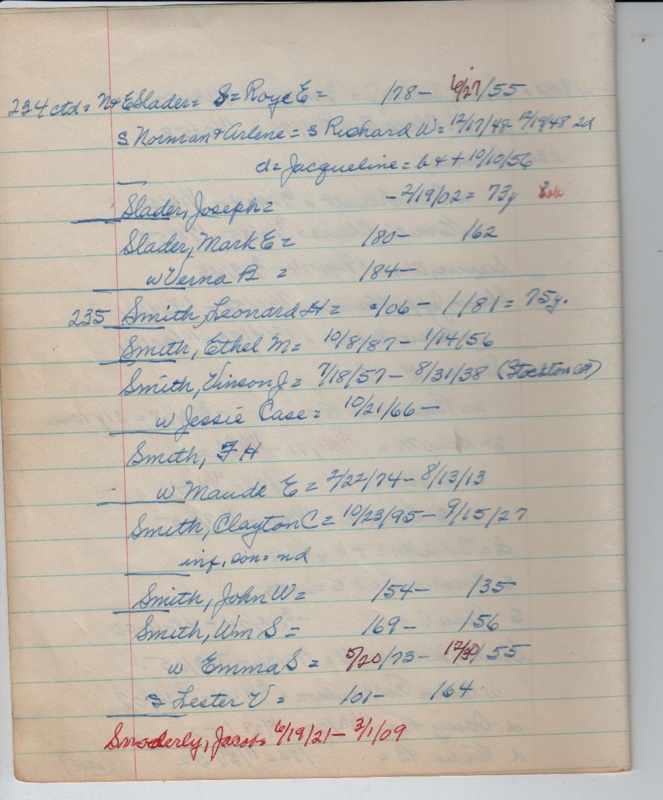 234 ctd = N+E Slader = S = Royce E = /78 - 6/27/55
S Norman + Arlene = S Richard W = 12/17/48 - 12/19/48 2d
d = Jacqueline = b + + 10/10/56
Slader, Joseph = - 2/19/02 = 73y
Slader, Mark E = 180 - 162
w Verna B = 184 -
235 Smith, Leonard H = /06 - 1-/81 = 75y.
Smith, Ethel M = 10/8/87 - 1/14/56
Smith, Vinson J = 7/18/57 - 8/31/38 (Stockton Cal)
w Jessie Case = 10/21/66 -
Smith, F H
w Maude E = 2/22/74 - 8/13/13
Smith, Clayton C = 10/23/95 - 9/15/27
inf. son = nd
Smith, John W = 154 - 135
Smith, Wm S = 169 - 156
w Emma S = 5/20/73 - 12/30/55
S Lester V = 101 - 164
Smoderly, Jacob 6/19/21 - 3/1/09